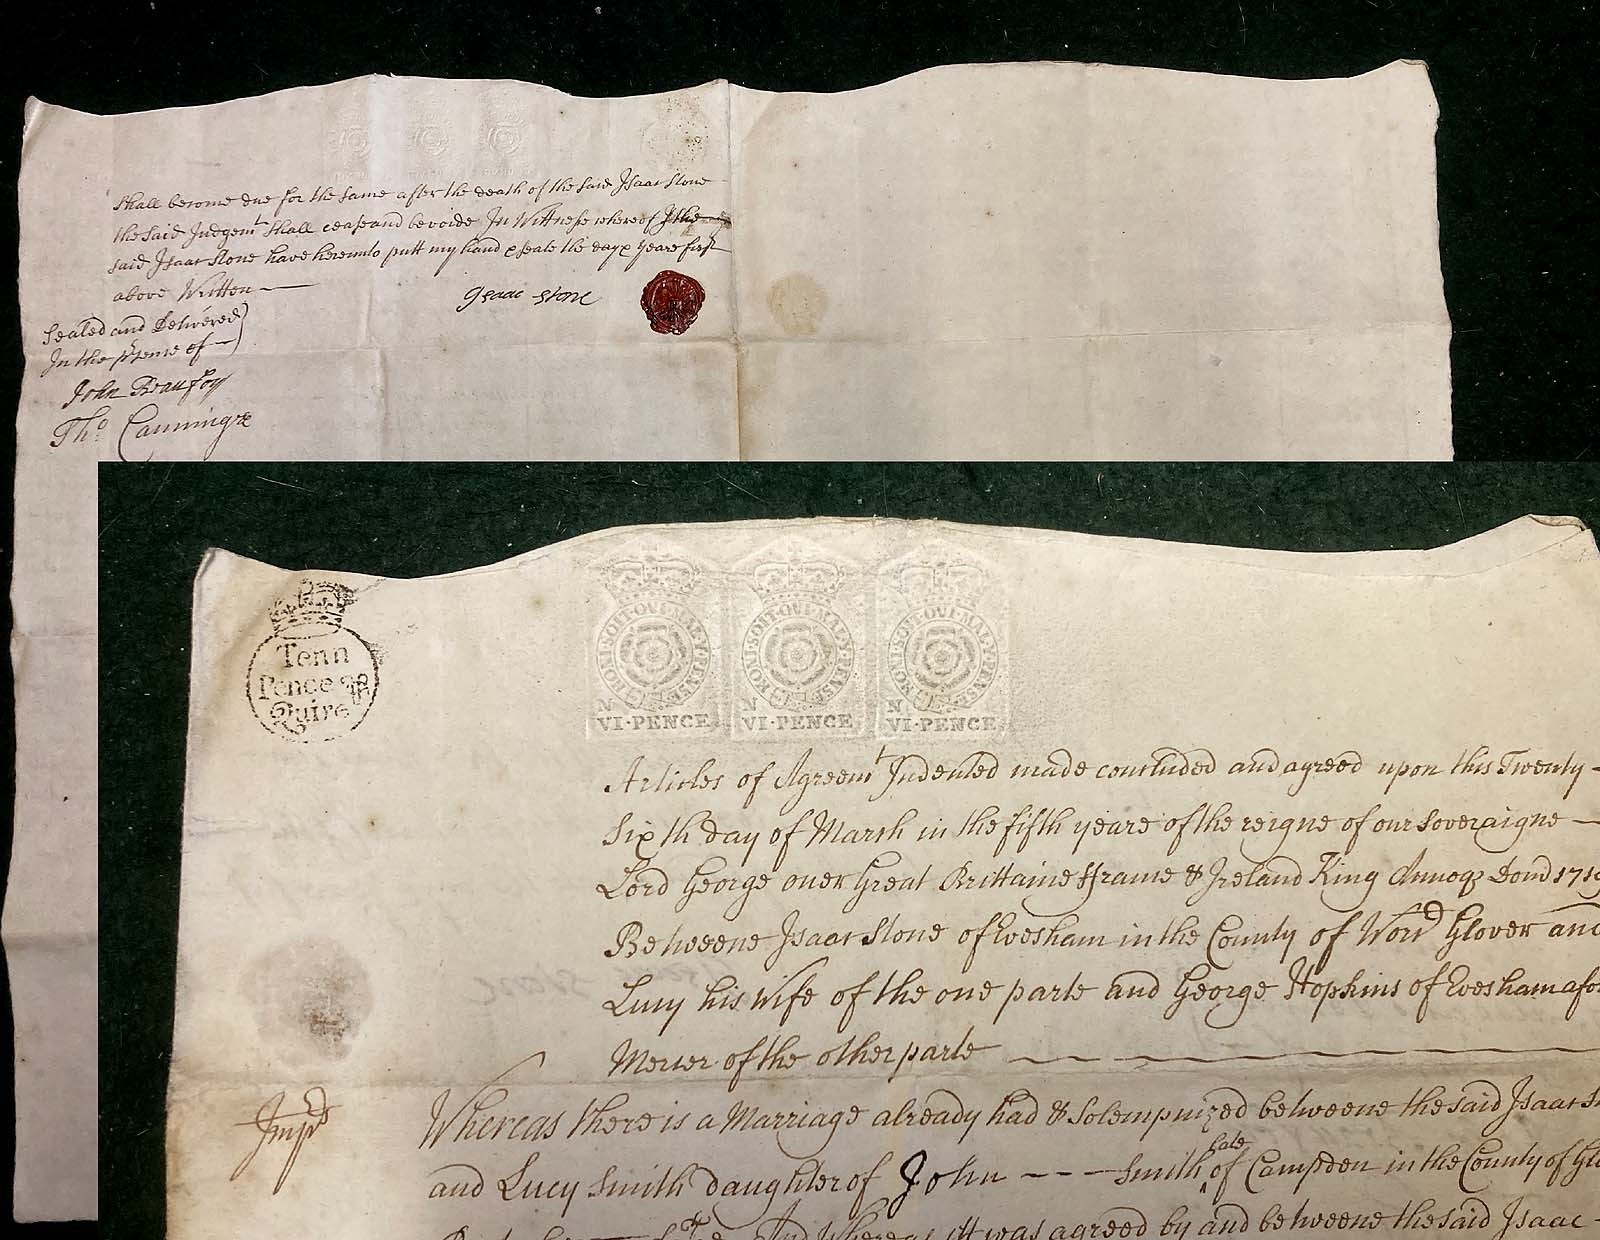 shall become due for the same after the death of the said Isaac Stone
the said Judgemt shall cease and be voide In Wittnesse whereof I the
said Isaac Stone have hereunto putt my hand & seale the day & yeare first
above Written
Isaac Stone
Sealed and Delivered
In the prsence of
John Beaufoy
Tho
Tenn
Pence P
Quire
HONI·SOIT·QUI·MAL·Y·PENSE
VI·PENCE
HONI·SOIT·QUI·MAL·Y·PENSE
VI·PENCE
HONI·SOIT·QUI·MAL·Y·PENSE
VI·PENCE
Articles of Agreemt Indented made concluded and agreed upon this Twenty
sixth day of March in the fifth yeare of the reigne of our Soveraigne
Lord George over Great Brittaine ffrance & Ireland King Annoq Domi 1719
Betweene Isaac Stone of Evesham in the County of Worr Glover and
Lucy his Wife of the one parte and George Hopkins of Evesham afor
Mercer of the other parte
Imprs
Whereas there is a Marriage already had & Solempnized betweene the said Isaac St
and Lucy Smith daughter of John - - - Smith late of Campden in the County of Glo
And Whereas itt was agreed by and betweene the said Isaac